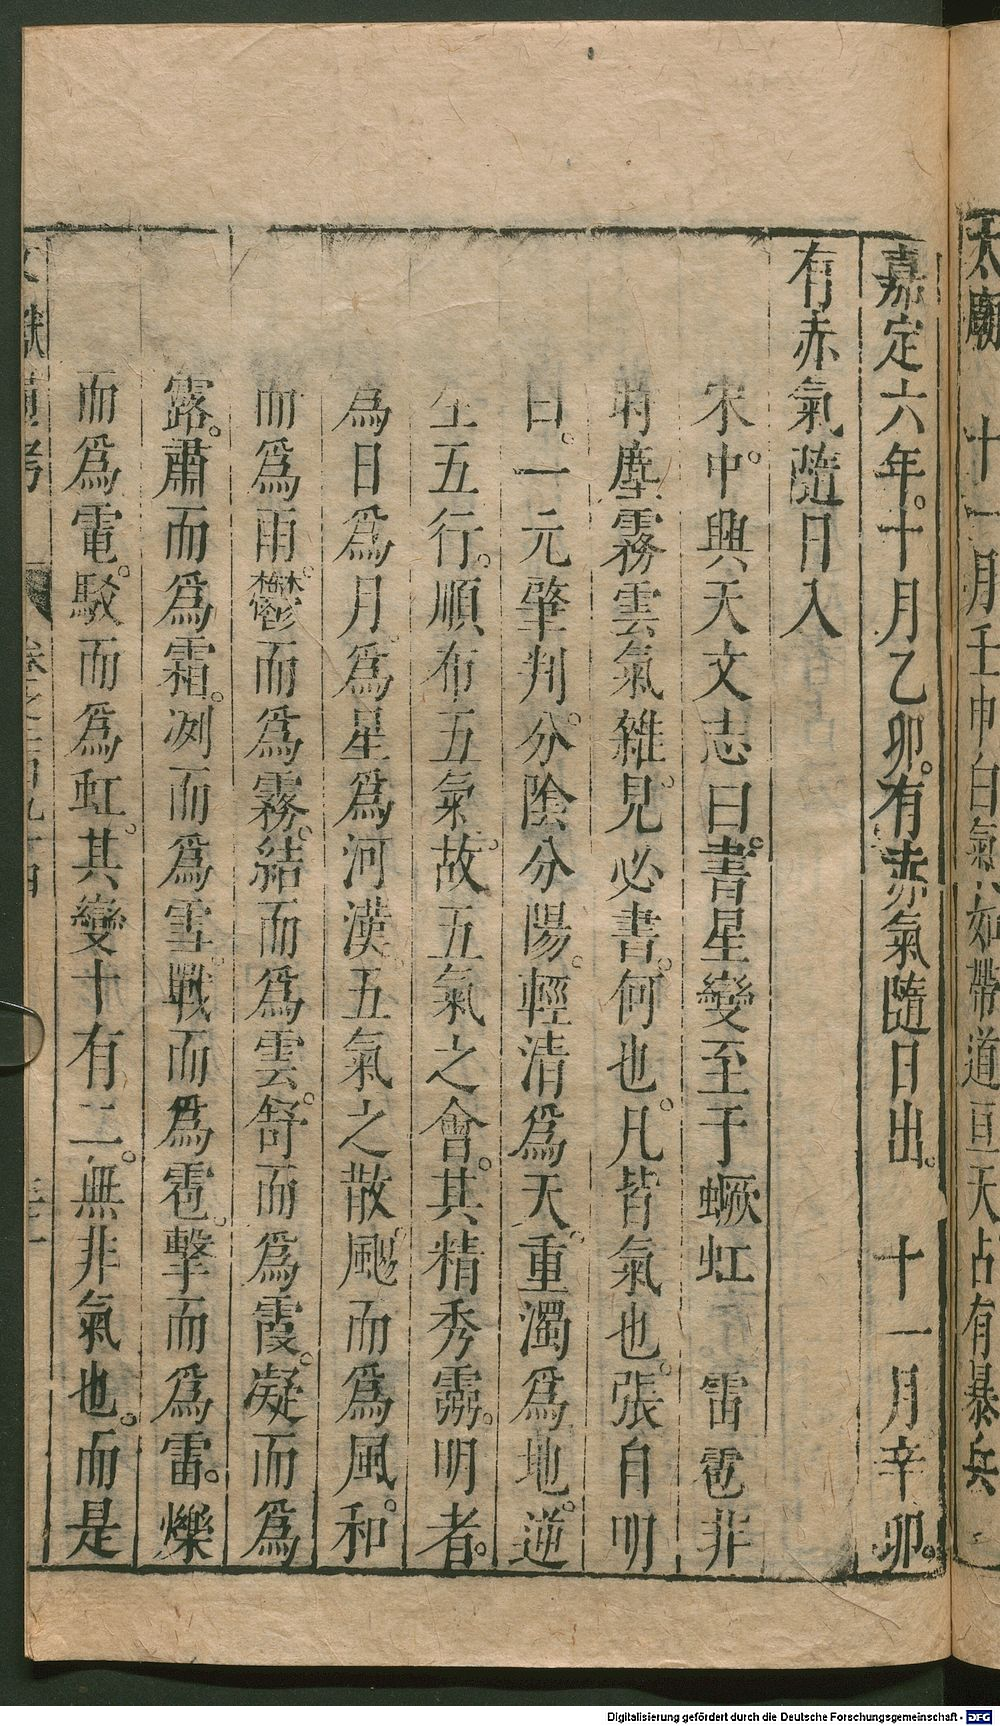 太廟 十一月壬申白氣如帶道亘天占有暴兵
嘉定六年。十月乙卯。有赤氣隨日出。 十一月辛卯。
有赤氣隨日入
宋中。興天文志曰。書星變至于蟩虹 雷雹非
時塵霧雲氣雜見。必書。何也。凡皆氣也。張自明
曰。一元肇判。分陰分陽。輕清爲天。重濁爲地。逆
生五行。順布五氣。故五氣之會。其精秀霛。明者。
爲日爲月。爲星爲河漢。五氣之散。颺而爲風。和
而爲雨。鬱而爲霧。結而爲雲。舒而爲霞。凝而爲
露。肅而爲霜。冽而爲雪。戰而爲雹。擊而爲雷。爍
而爲電。駁而爲虹。其變十有二。無非氣也。而是
文獻通考 卷之二百九十四